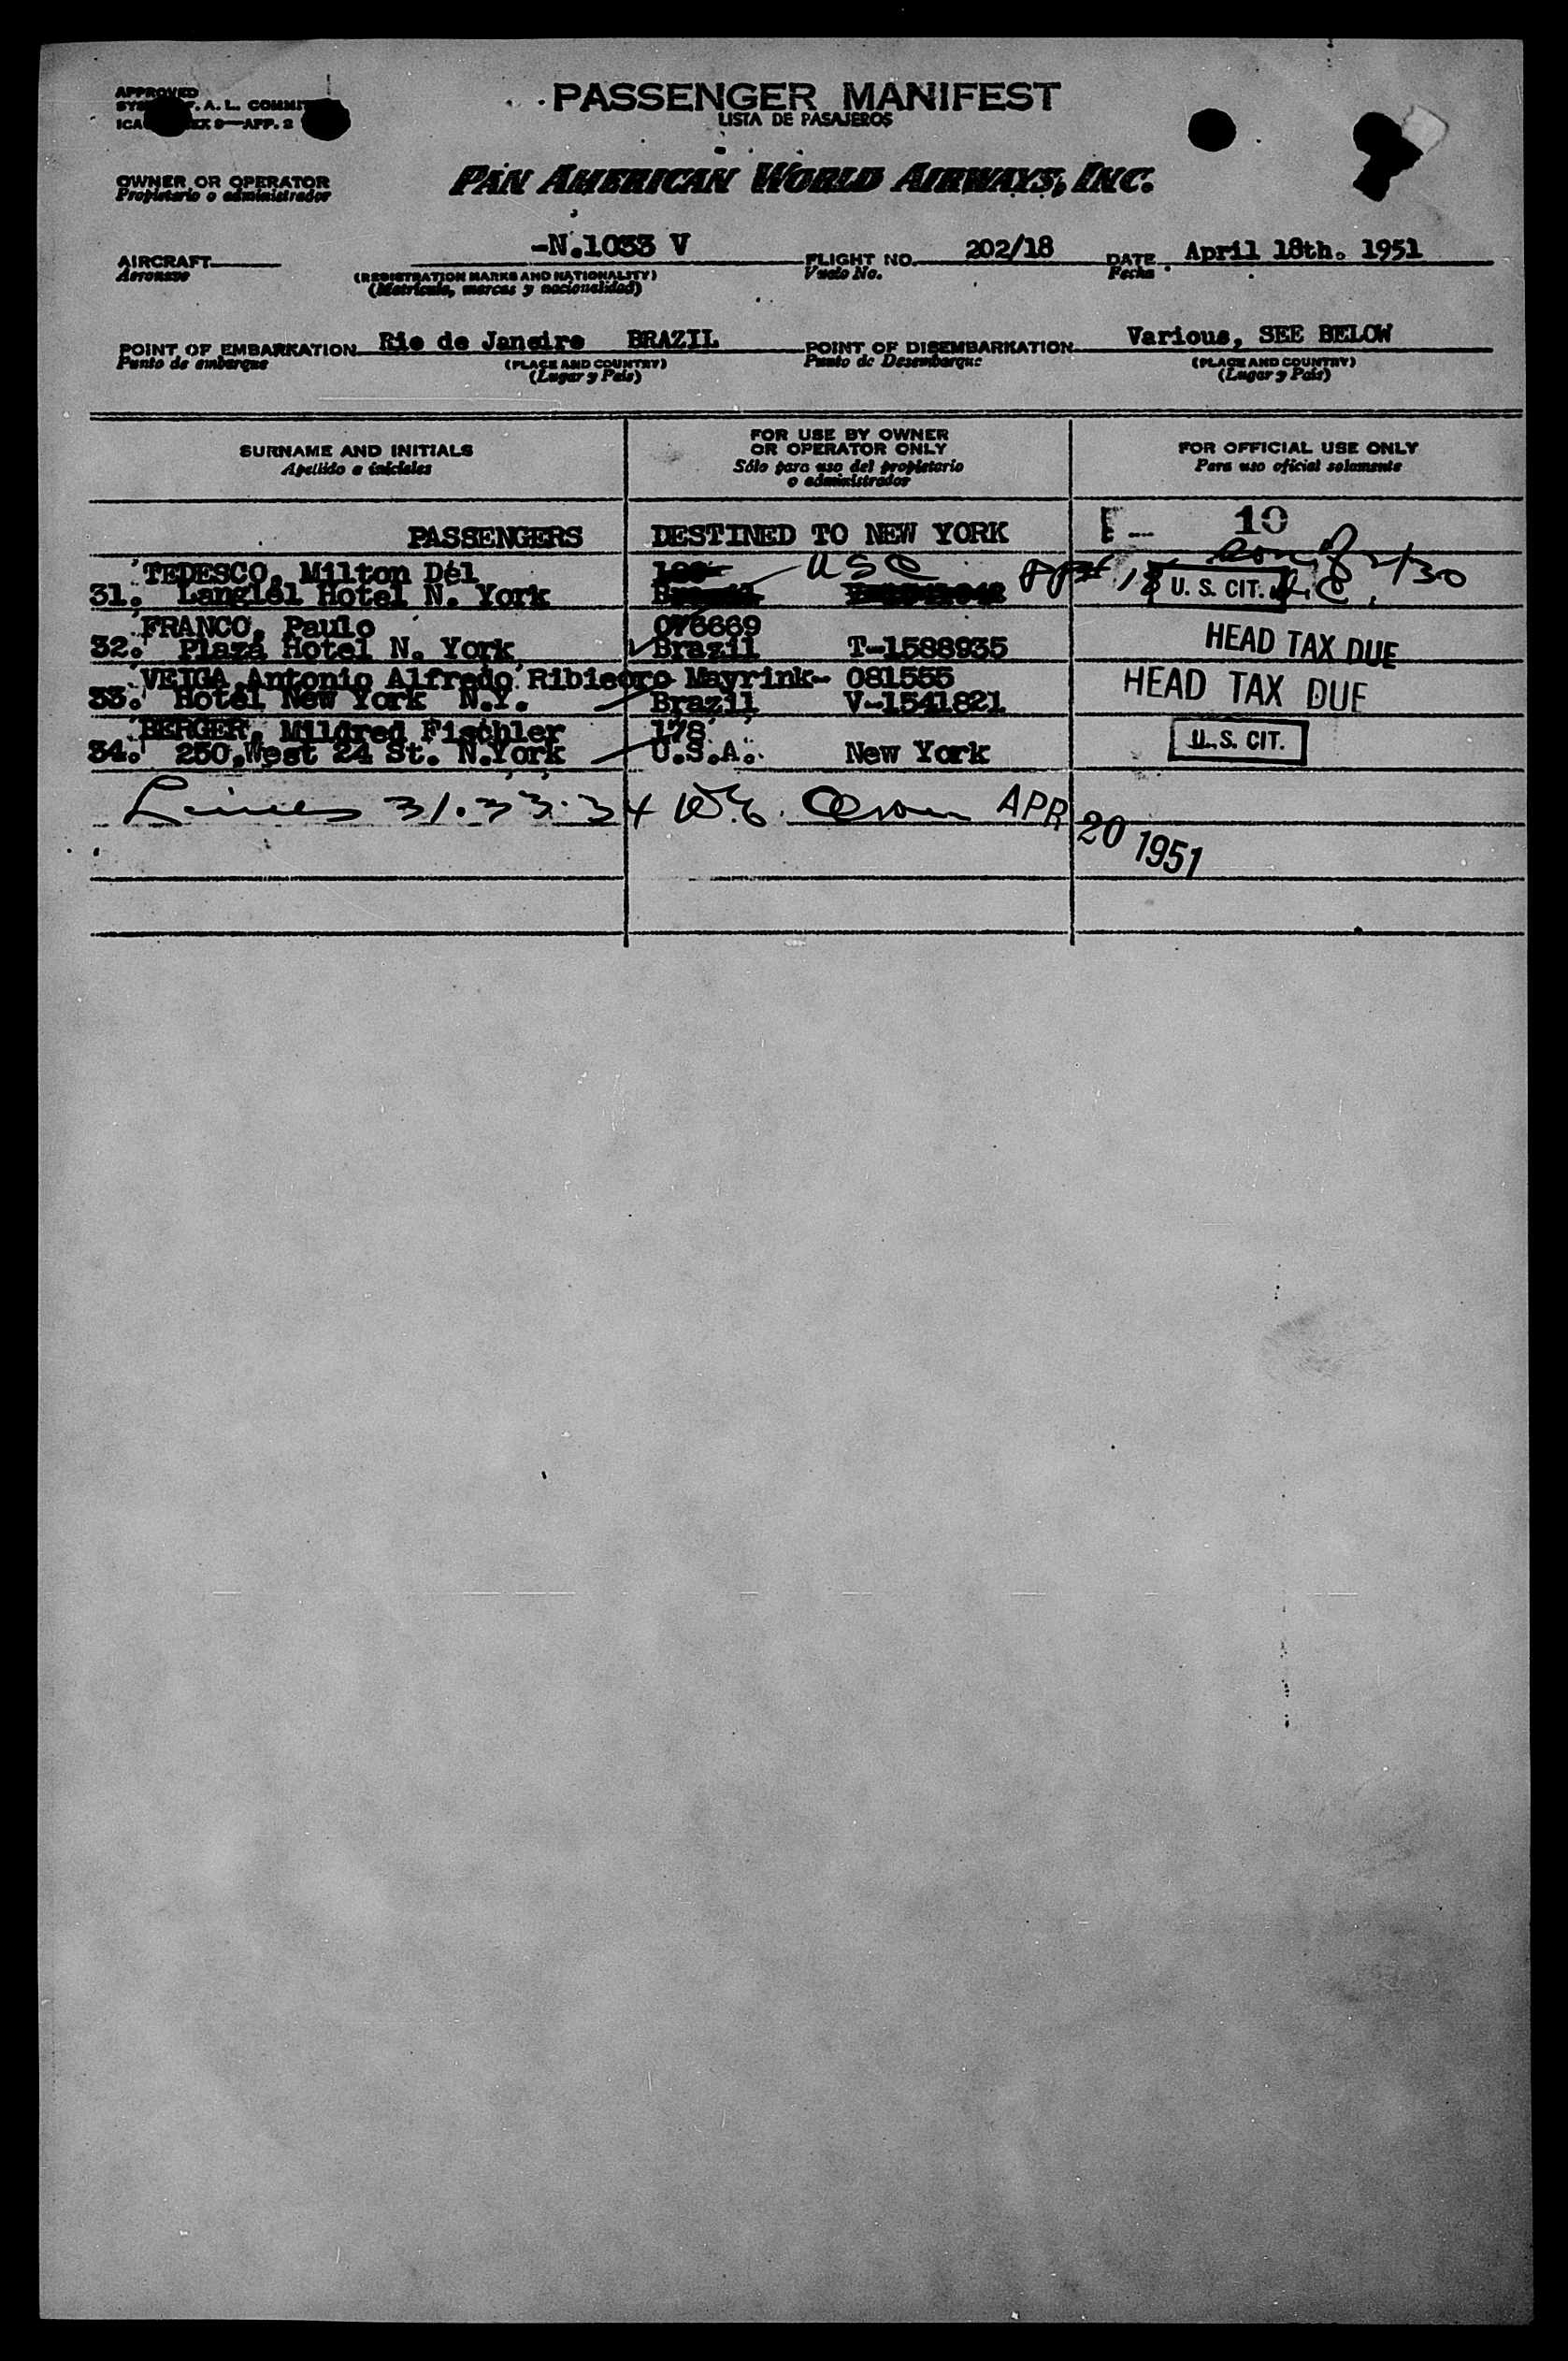 APPROVED
F. A. L. COMMIT
9—APP. 2
PASSENGER MANIFEST
LISTA DE PASAJEROS
OWNER OR OPERATOR
Propietario o administrador
PAN AMERICAN WORLD AIRWAYS, INC.
AIRCRAFT
Aeronave
-N.1033 V
(REGISTRATION MARKS AND NATIONALITY)
(Matrícula, marcas y nacionalidad)
FLIGHT NO. 202/18
Vuelo No.
DATE April 18th. 1951
Fecha
POINT OF EMBARKATION Rio de Janeiro BRAZIL
Punto de embarque
(PLACE AND COUNTRY)
(Lugar y País)
POINT OF DISEMBARKATION Various, SEE BELOW
Punto de Desembarque
(PLACE AND COUNTRY)
(Lugar y País)
SURNAME AND INITIALS
Apellido e iniciales
FOR USE BY OWNER
OR OPERATOR ONLY
Sólo para uso del propietario
o administrador
FOR OFFICIAL USE ONLY
Para uso oficial solamente
PASSENGERS DESTINED TO NEW YORK 10
TEDESCO, Milton Del USC
31. Langlel Hotel N. York U. S. CIT.
FRANCO, Paulo 076669
32. Plaza Hotel N. York Brazil T-1588935 HEAD TAX DUE
VEIGA, Antonio Alfredo Ribieoro Mayrink- 081555
33. Hotel New York N.Y. Brazil V-1541821 HEAD TAX DUE
BERGER, Mildred Fischler 178
34. 250,West 24 St. N.York U.S.A. New York U.S. CIT.
Lines 31.33.34 APR 20 1951